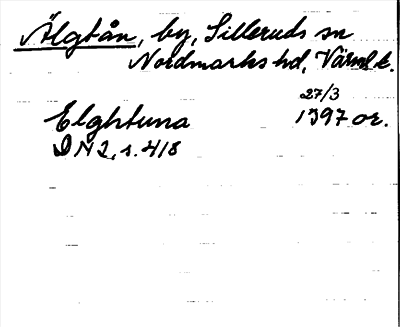 Älgtån, by, Silleruds sn
Nordmarks hd, Värml.
27/3
Elghtuna 1397 or.
DN 2, s. 418